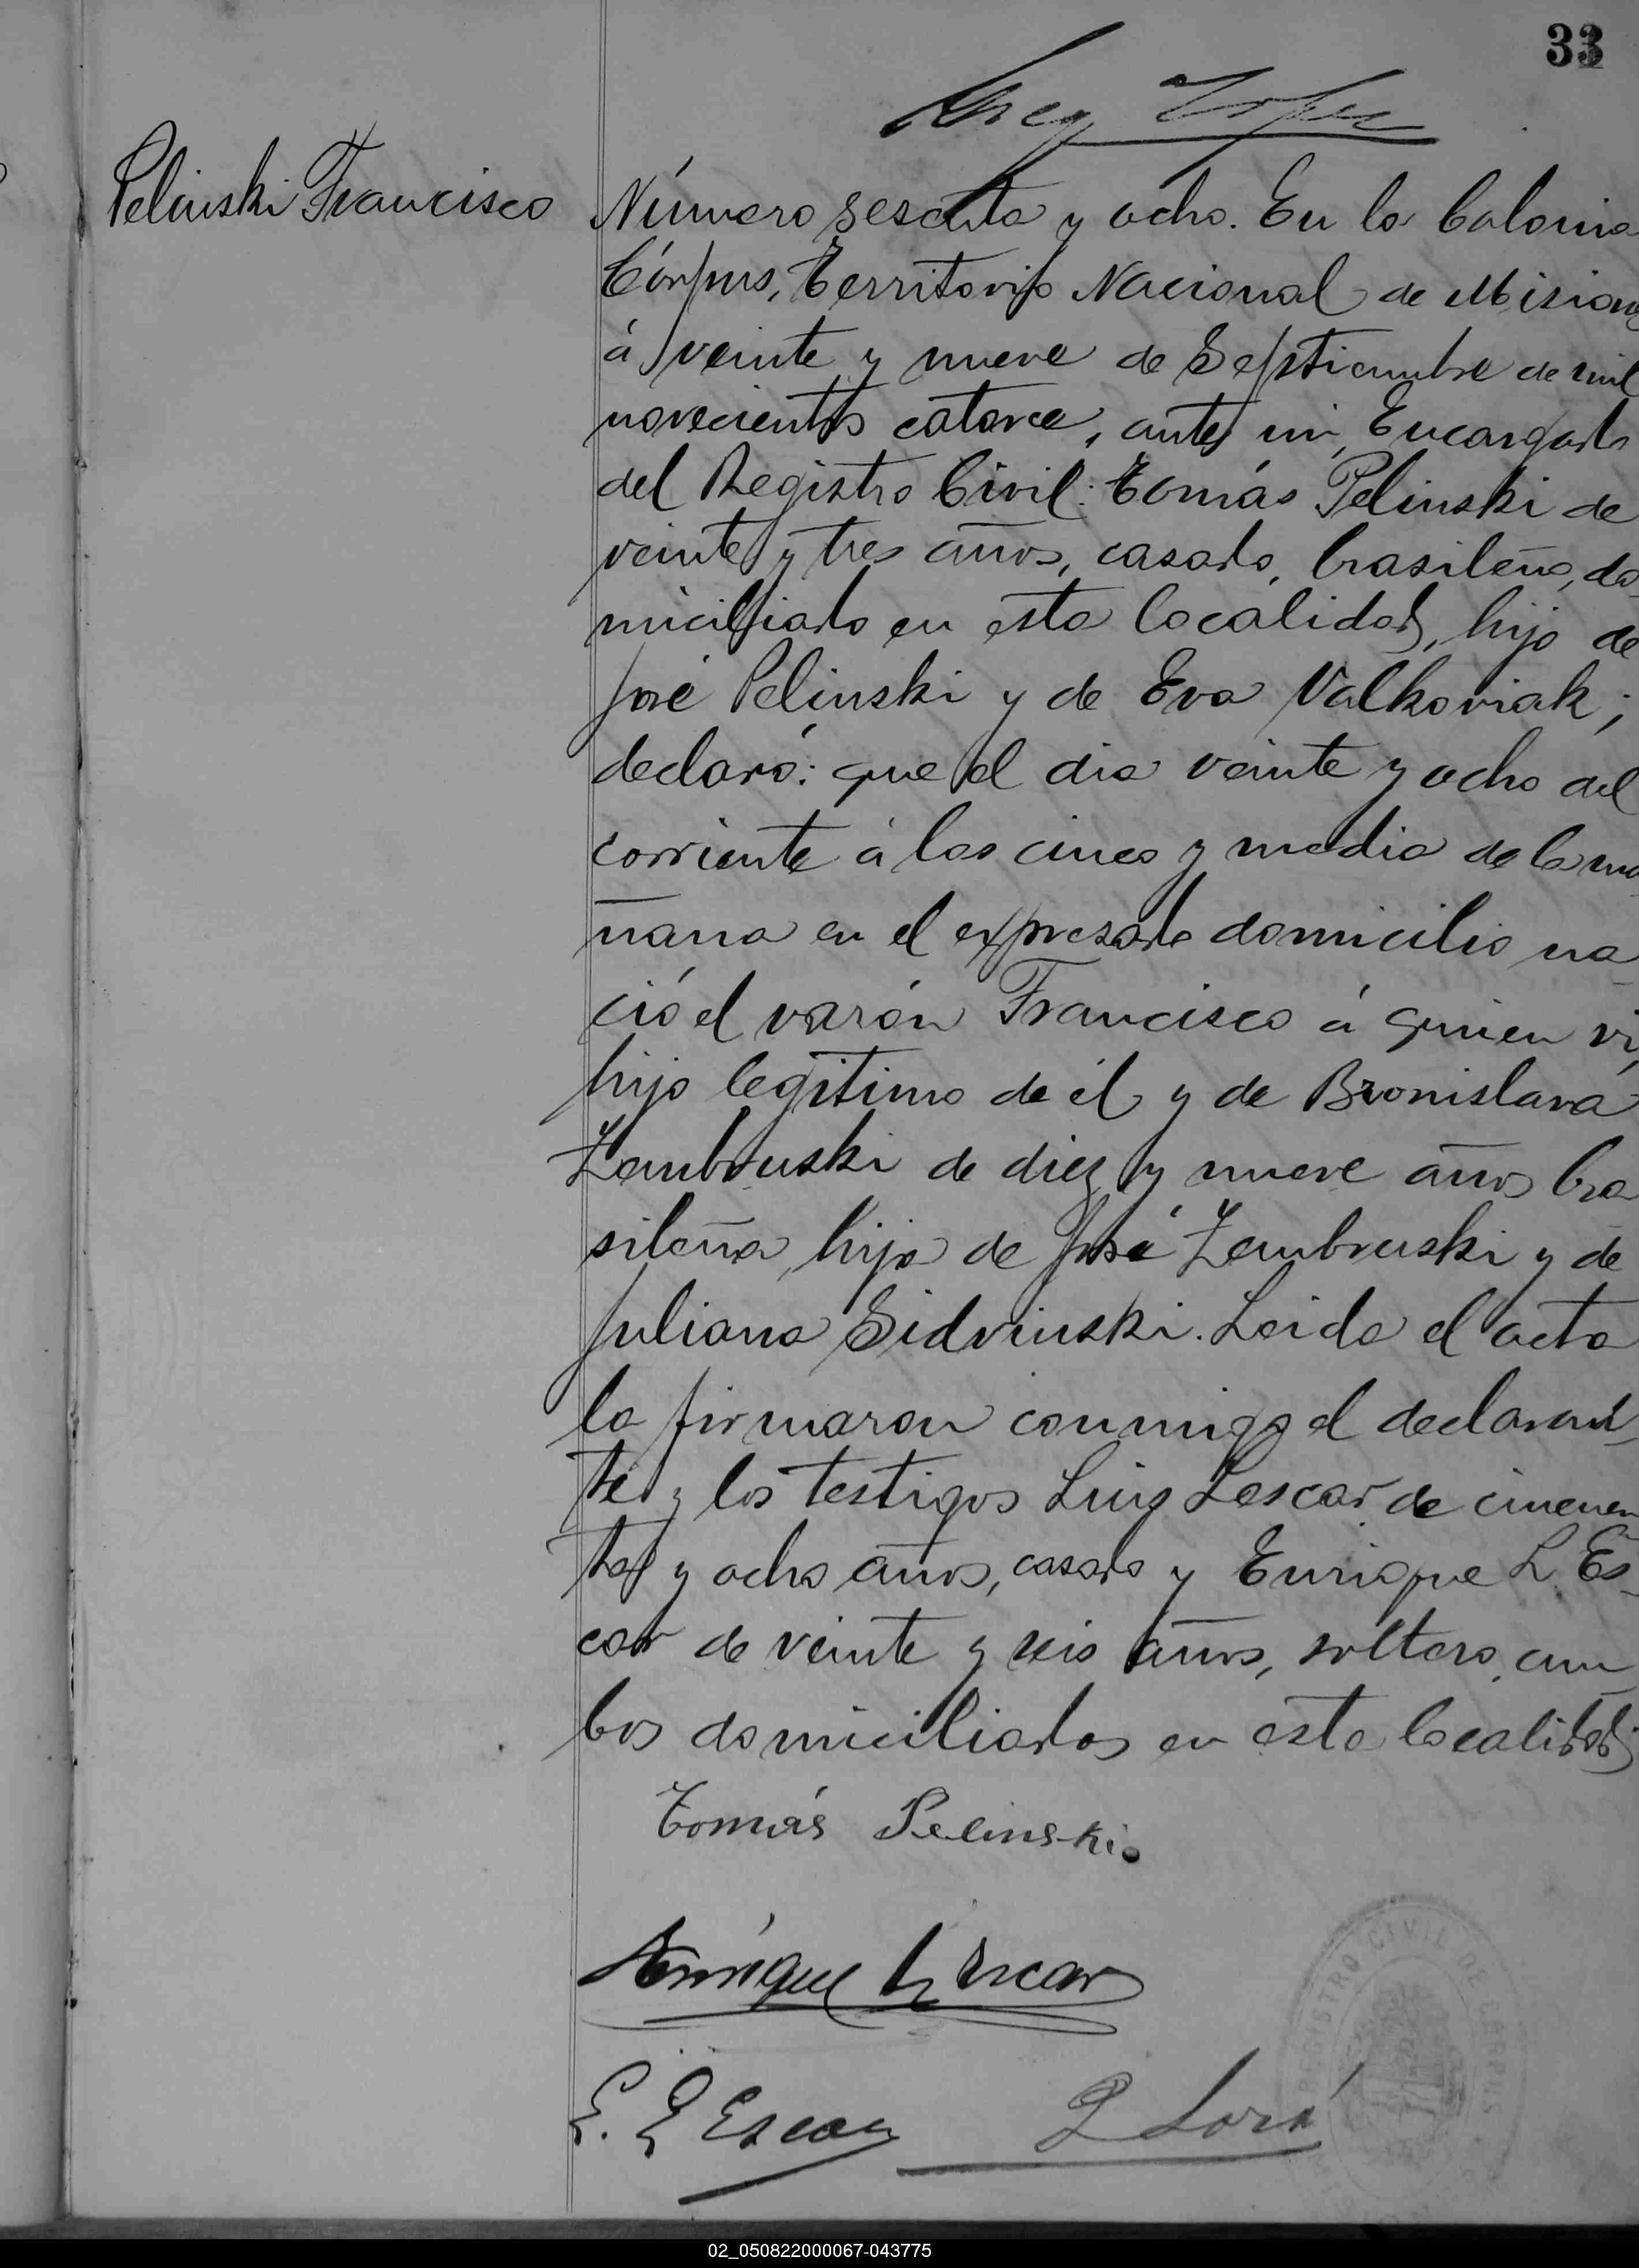 33
Pelinski Francisco
Número sesenta y ocho. En la Colonia
Córpus, Territorio Nacional de Misiones
á veinte y nueve de Septiembre de mil
novecientos catorce, ante mi, Encargado
del Registro Civil: Tomás Pelinski de
veinte y tres años, casado, brasileño, do
miciliado en esta localidad, hijo de
José Pelinski y de Eva Valkoviak;
declaró: que el dia veinte y ocho del
corriente á las cinco y media de la ma
ñana en el expresado domicilio na
ció el varón Francisco á quien vi,
hijo legitimo de él y de Bronislava
Zembruski de diez y nueve años bra
sileña, hija de José Zembruski y de
Juliana Sidvinski. Leida el acta
la firmaron conmigo el declaran
te y los testigos Luis Lescar de cincuen
ta y ocho años, casado y Enrique L. Es
car de veinte y seis años, soltero, am
bos domiciliados en esta localidad
Tomás Pelinski.
Enrique L Escar
REGISTRO CIVIL DE CORPUS
02_050822000067-043775